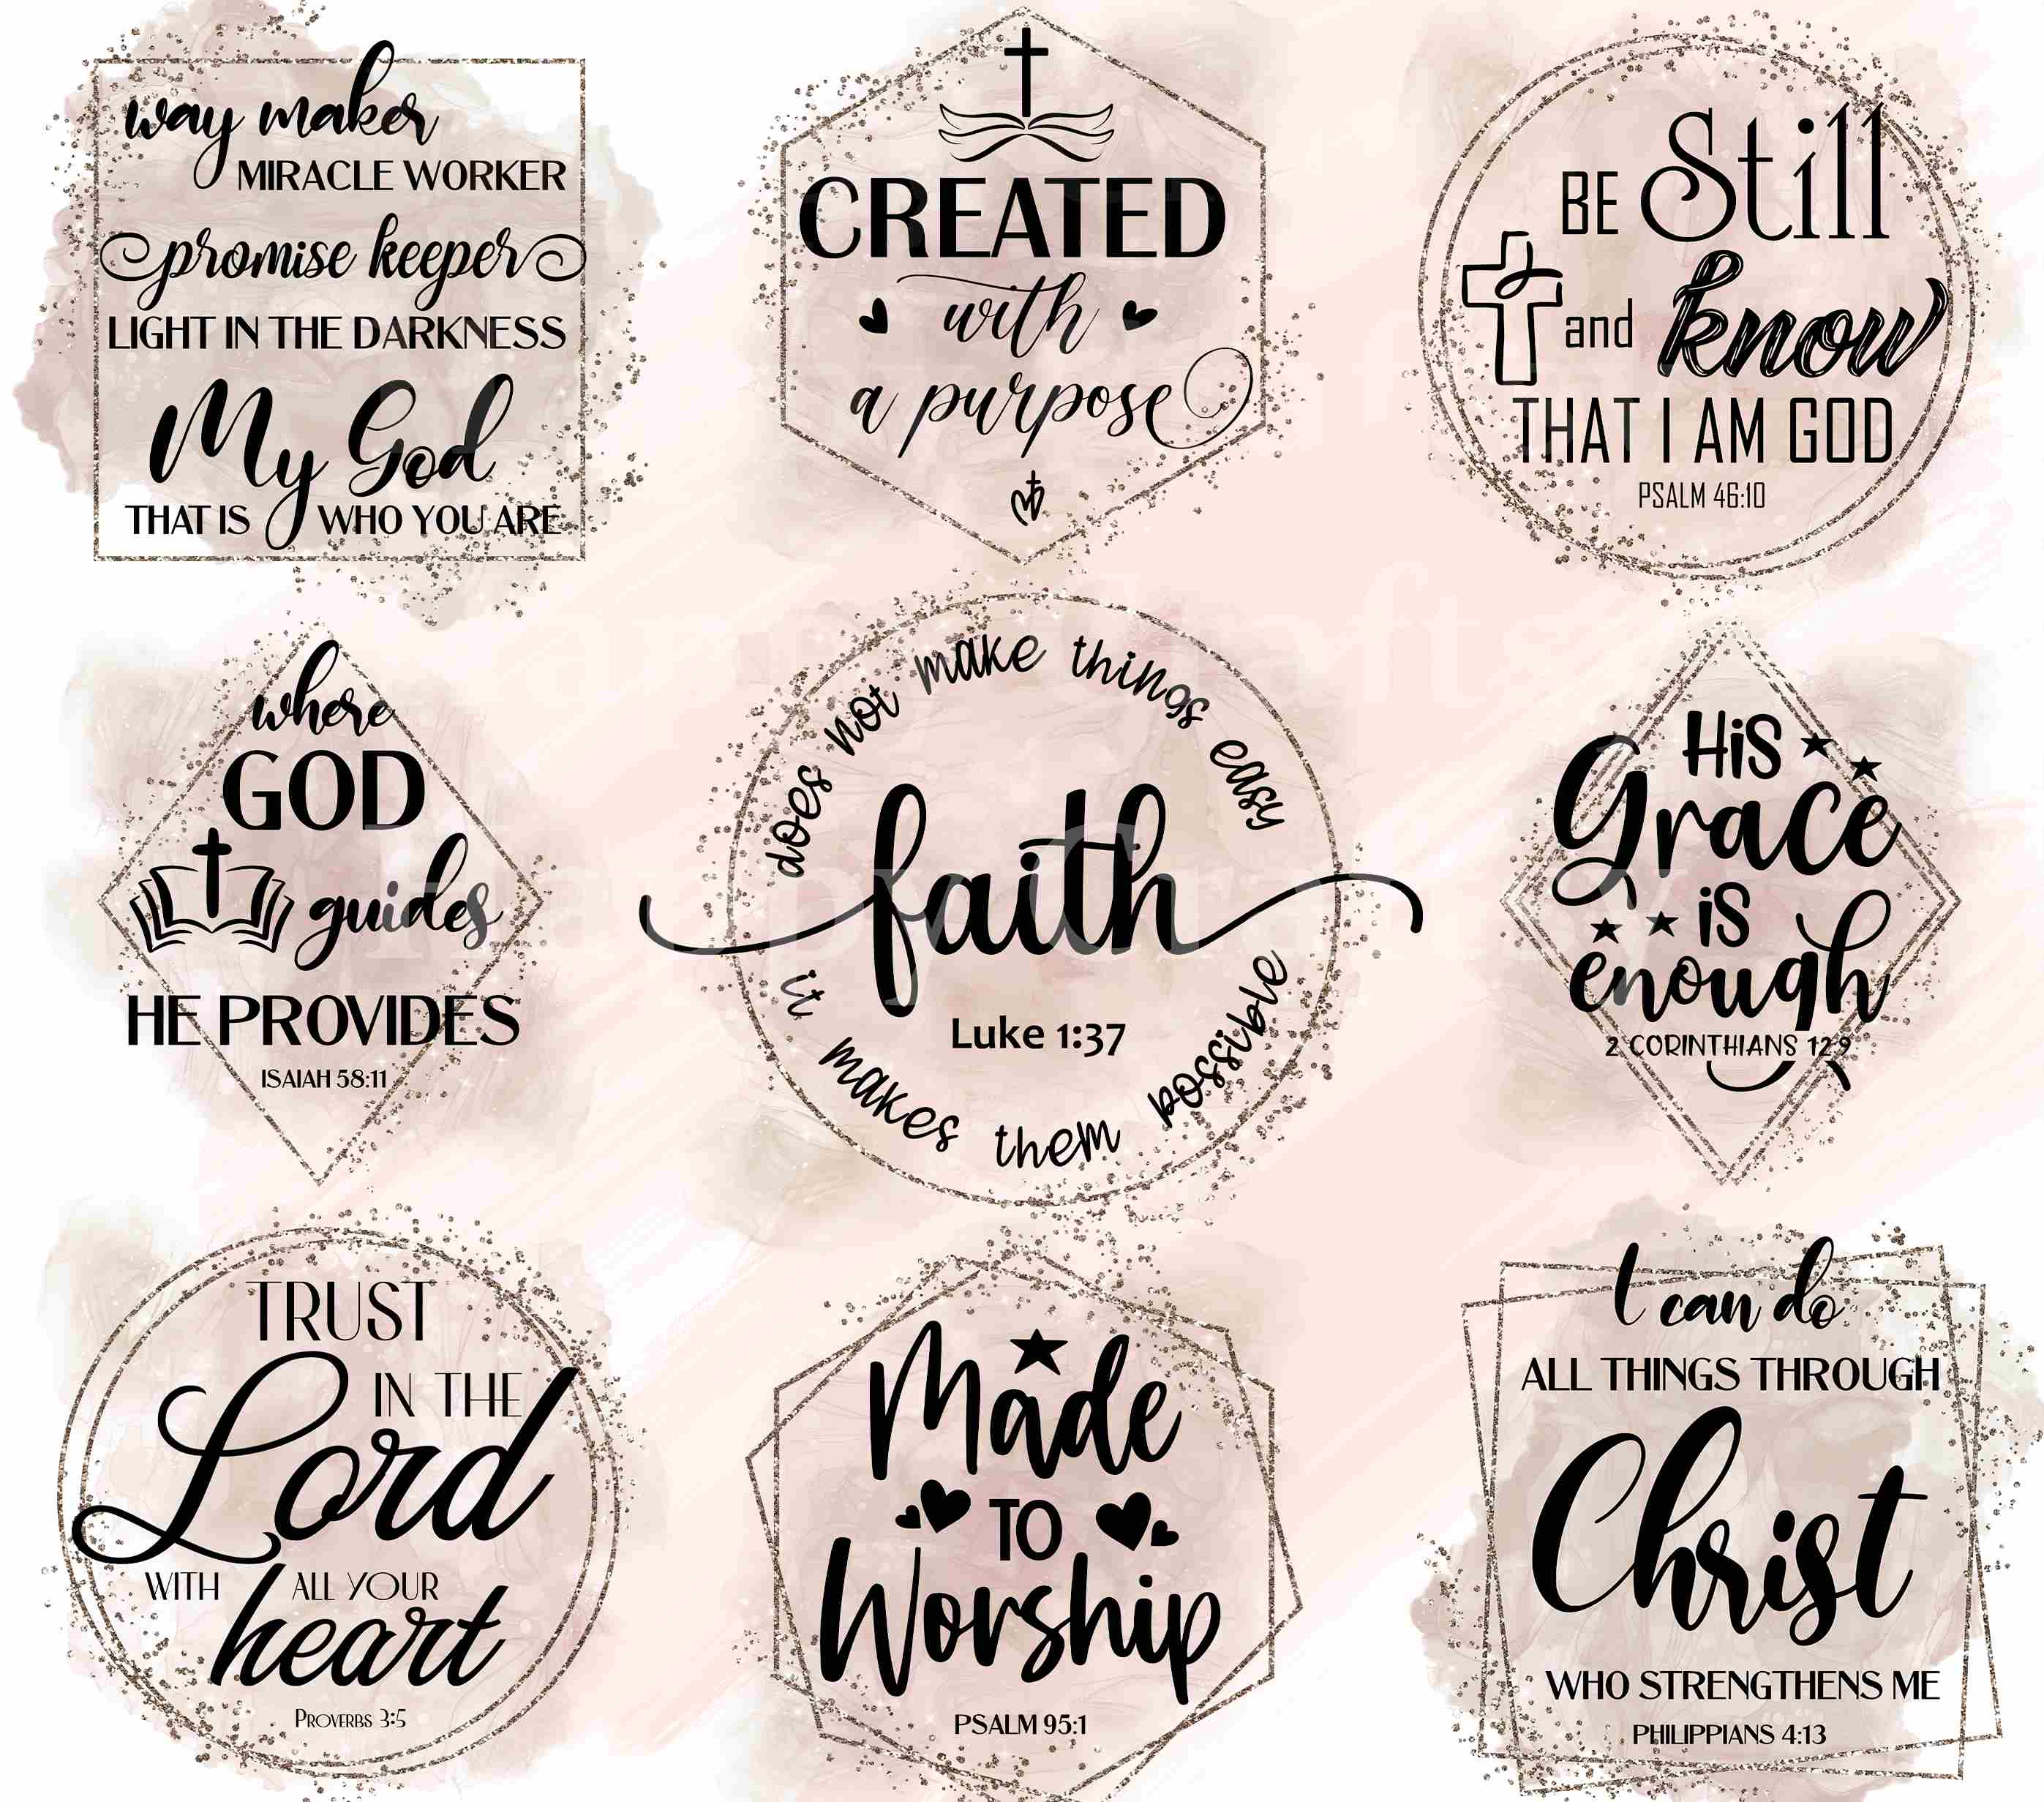 way maker
MIRACLE WORKER
promise keeper
LIGHT IN THE DARKNESS
My God
THAT IS WHO YOU ARE
CREATED
with
a purpose
BE Still
and know
THAT I AM GOD
PSALM 46:10
where
GOD
guides
HE PROVIDES
ISAIAH 58:11
faith
does not make things easy
it makes them possible
Luke 1:37
HiS
Grace
iS
enough
2 CORINTHIANS 12:9
TRUST
IN THE
Lord
WITH ALL YOUR
heart
PROVERBS 3:5
Made
TO
Worship
PSALM 95:1
I can do
ALL THINGS THROUGH
Christ
WHO STRENGTHENS ME
PHILIPPIANS 4:13